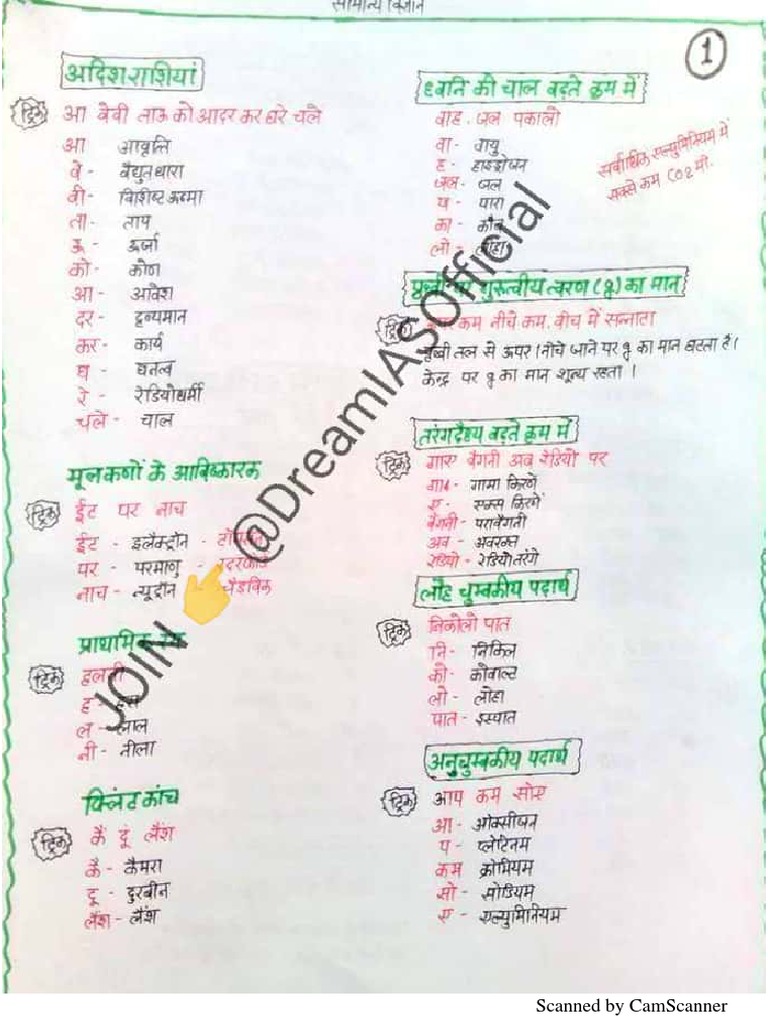 सामान्य विज्ञान
1
अदिश राशियां
ट्रिक
आ वेवी ताऊ को आदर कर घरे चले
आ आवृत्ति
वे - वैद्युत धारा
वी - विशिष्ट ऊष्मा
ता - ताप
ऊ - ऊर्जा
को - कोण
आ - आवेश
दर - द्रव्यमान
कर - कार्य
घ - घनत्व
रे - रेडियोधर्मी
चले - चाल
मूल कणों के आविष्कारक
ट्रिक
ईट पर नाच
ईट - इलैक्ट्रॉन -
पर - परमाणु -
नाच - न्यूट्रॉन - चैडविक
प्राथमिक
ट्रिक
ह
ल - लाल
नी - नीला
फ्लिंट कांच
ट्रिक
कै दूं लैंश
कै - कैमरा
दू - दुरबीन
लैंश - लैंश
ध्वनि की चाल बढ़ते क्रम में
वाह जल पकालो
वा - वायु
ह - हाइड्रोजन
जल - जल
प - पारा
का - काँच
लो - लोहा
सर्वाधिक एल्युमिनियम में
सबसे कम CO2 में
पृथ्वी पर गुरुत्वीय त्वरण (g) का मान
ट्रिक
कम नीचे कम, बीच में सन्नाटा
पृथ्वी तल से ऊपर / नीचे जाने पर g का मान घटता है।
केन्द्र पर g का मान शून्य रहता।
तरंगदैर्ध्य बढ़ते क्रम में
ट्रिक
गाए बैगनी अब रेडियों पर
गा - गामा किरणें
ए - एक्स किरणें
बैगनी - पराबैगनी
अव - अवरक्त
रेडियो - रेडियो तरंगे
लौह चुम्बकीय पदार्थ
ट्रिक
निकोलो पात
नि - निकिल
को - कोबाल्ट
लो - लोहा
पात - इस्पात
अनुचुम्बकीय पदार्थ
ट्रिक
आप कम सोए
आ - ऑक्सीजन
प - प्लेटिनम
कम क्रोमियम
सो - सोडियम
ए - एल्युमिनियम
JOIN 👉 @DreamIASOfficial
Scanned by CamScanner